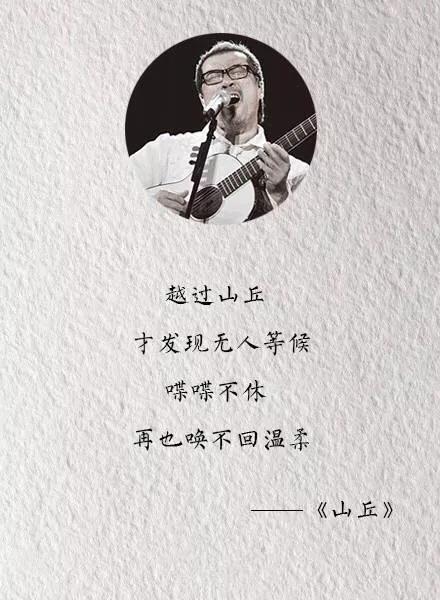 越过山丘
才发现无人等候
喋喋不休
再也唤不回温柔
——《山丘》